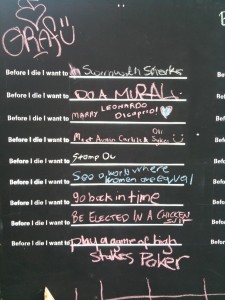 GRAFU
Before I die I want to Swim with Sharks
Before I die I want to DO A MURAL.
Before I die I want to MARRY LEONARDO DICAPRIO!
Before I die I want to Meet Austin Carlile & Oli Sykes
Before I die I want to Stomp Ou
Before I die I want to See a world where women are equal
Before I die I want to go back in time
Before I die I want to BE ELECTED IN A CHICKEN SUIT
Before I die I want to play a game of high
Stakes Poker